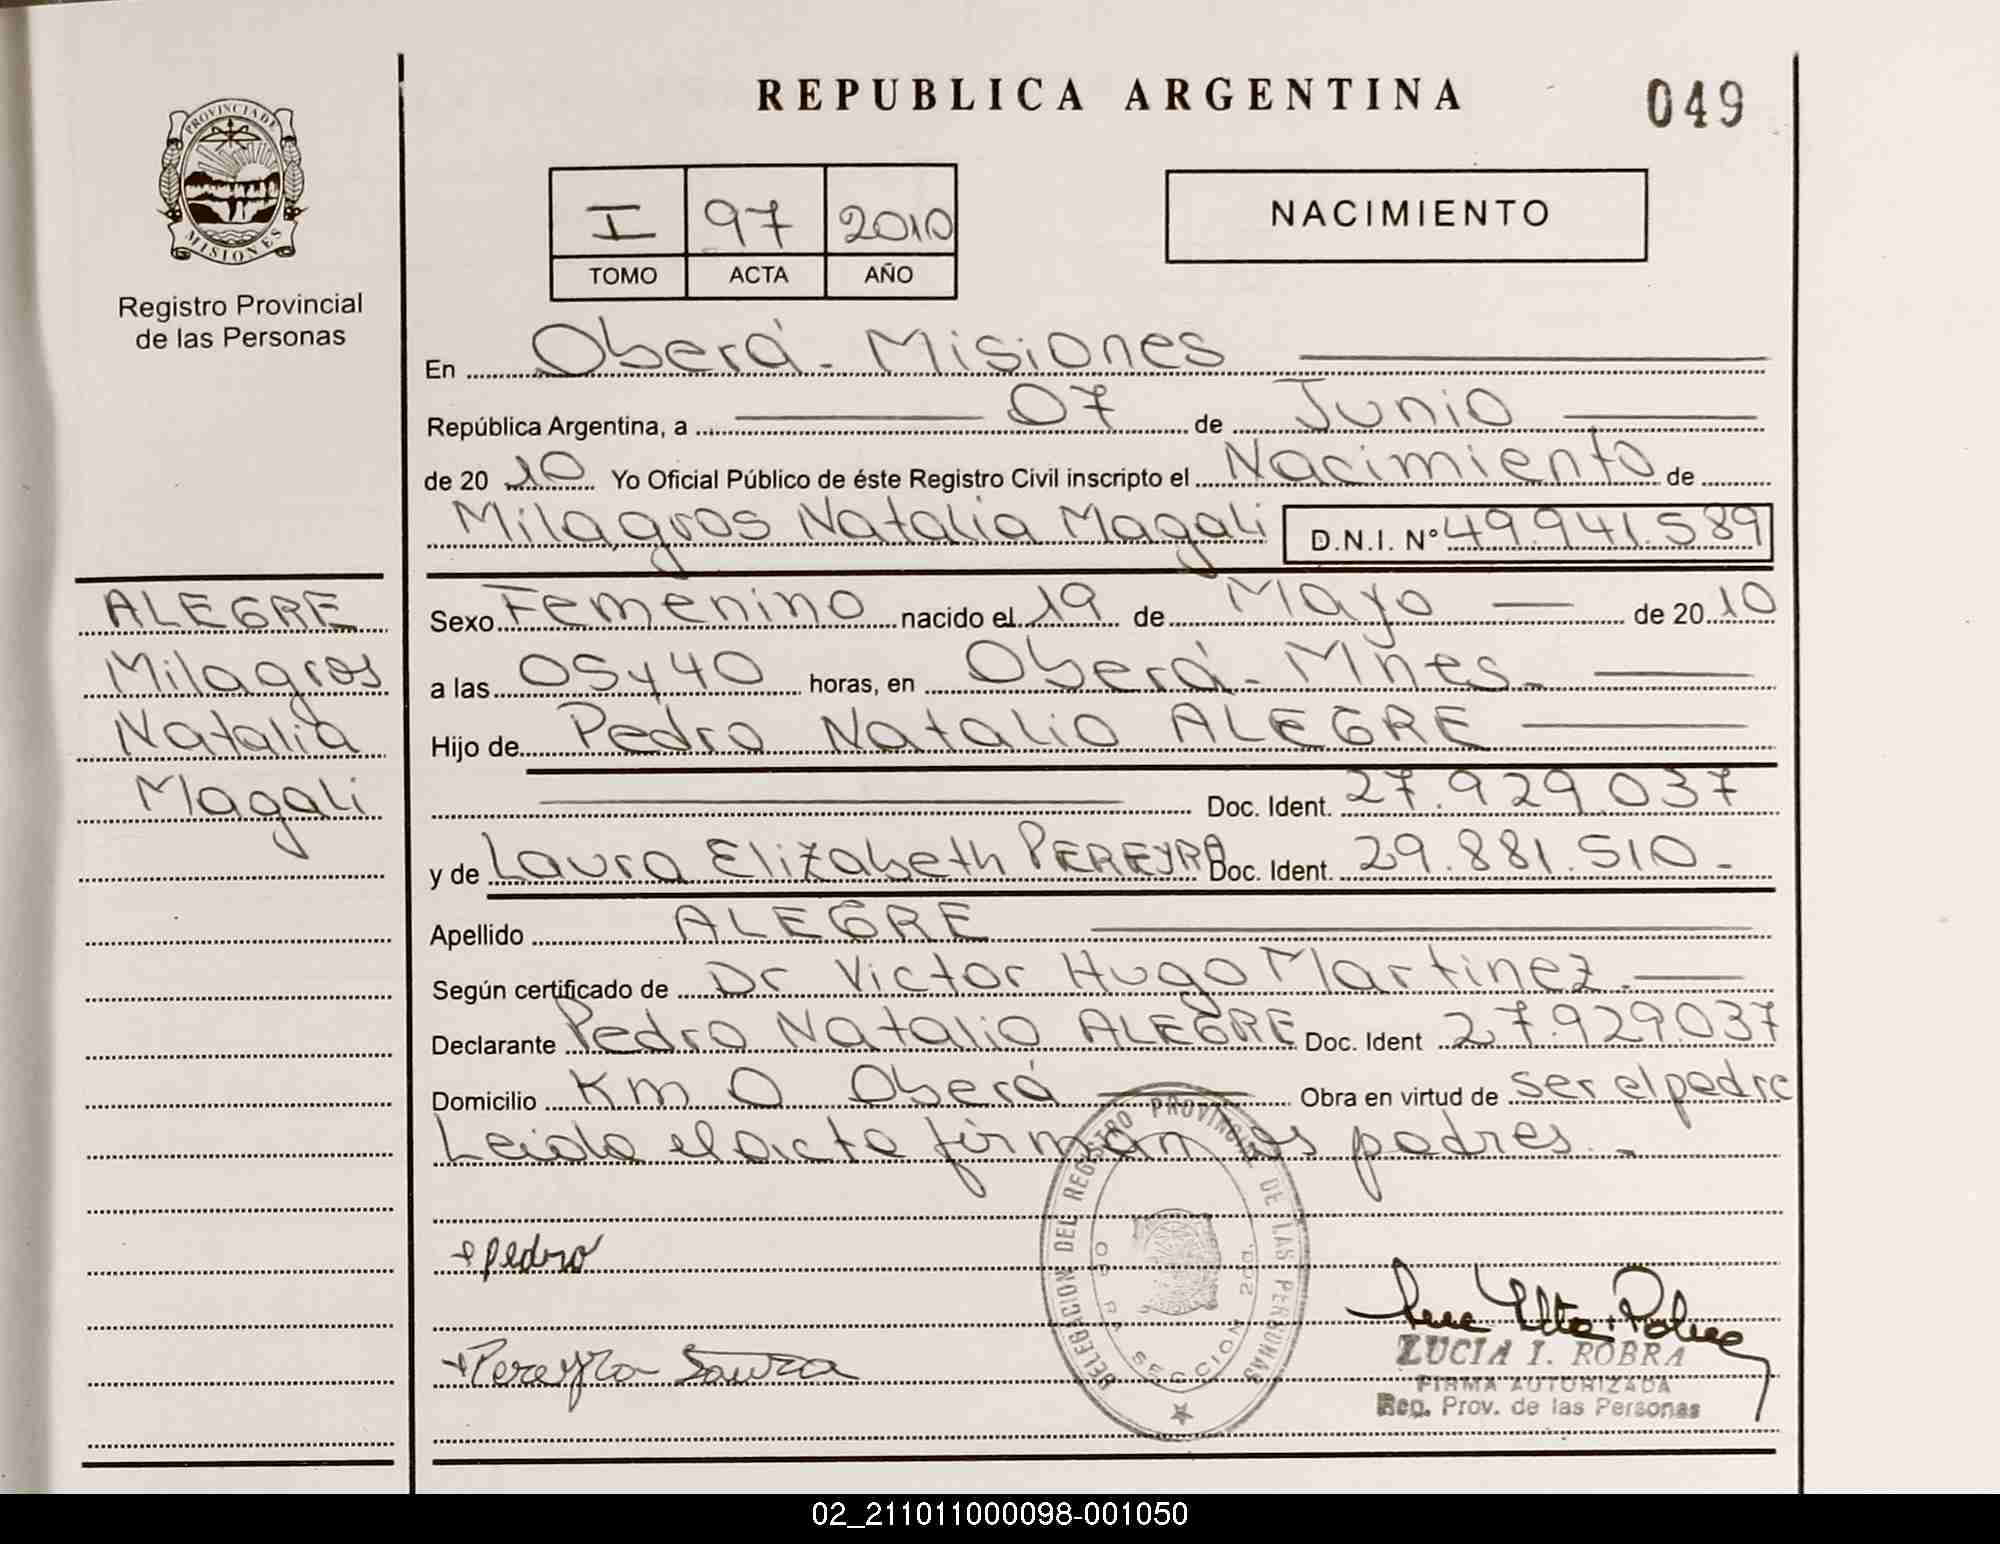 REPUBLICA ARGENTINA
049
PROVINCIA DE
MISIONES
Registro Provincial
de las Personas
I 97 2010
TOMO ACTA AÑO
NACIMIENTO
En Oberá - Misiones
República Argentina, a 07 de Junio
de 20 10 Yo Oficial Público de éste Registro Civil inscripto el Nacimiento de
Milagros Natalia Magali D.N.I. Nº 49.941.589
ALEGRE
Milagros
Natalia
Magali
Sexo Femenino nacido el 19 de Mayo de 20 10
a las 05 y 40 horas, en Oberá - Mnes.
Hijo de Pedro Natalio ALEGRE
Doc. Ident. 27.929.037
y de Laura Elizabeth PEREYRA Doc. Ident. 29.881.510.-
Apellido ALEGRE
Según certificado de Dr Victor Hugo Martinez.
Declarante Pedro Natalio ALEGRE Doc. Ident 27.929.037
Domicilio Km 0 Oberá Obra en virtud de ser el padre
Leida el acta firman los padres.-
+ pedro
+ Pereyra Laura
DELEGACION DEL REGISTRO PROVINCIAL DE LAS PERSONAS
SECCION 2DA.
LUCIA I. ROBRA
FIRMA AUTORIZADA
Reg. Prov. de las Personas
02_211011000098-001050